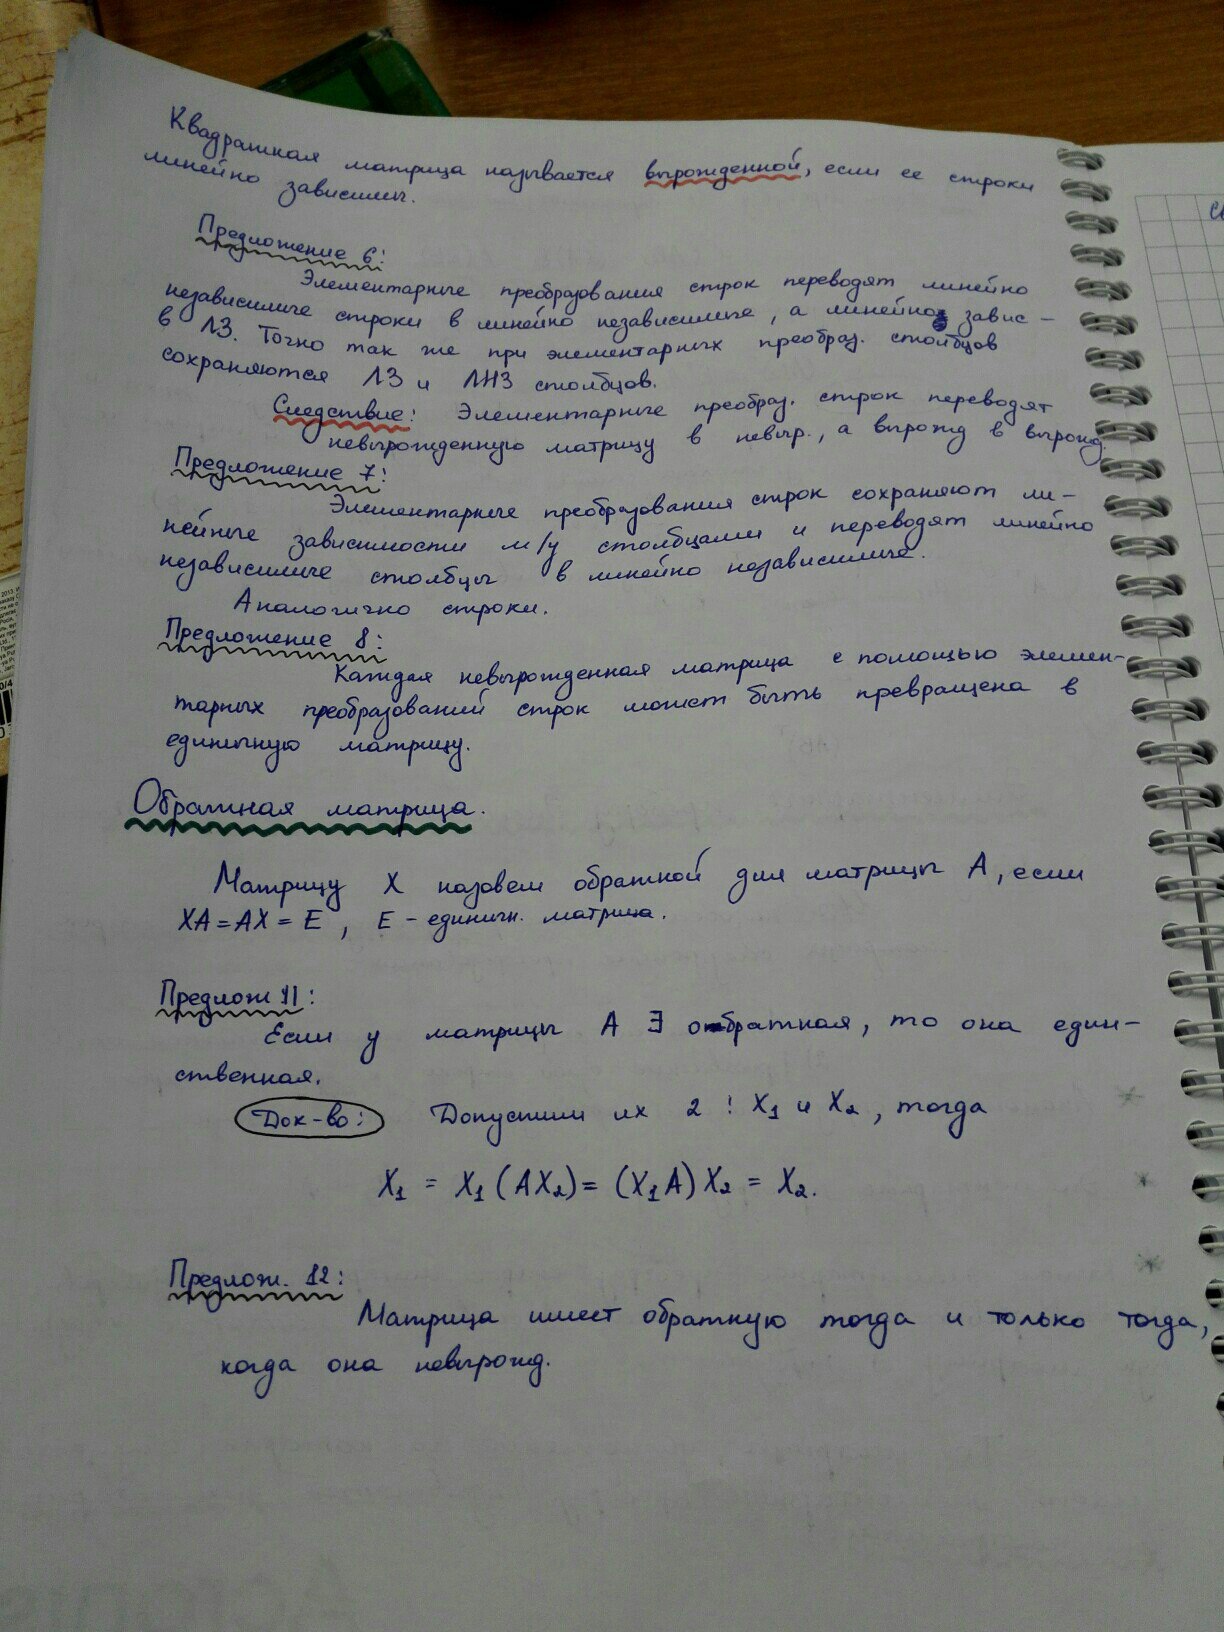 Квадратная матрица называется вырожденной, если ее строки
линейно зависимы.
Предложение 6:
Элементарные преобразования строк переводят линейно
независимые строки в линейно независимые, а линейно завис -
в ЛЗ. Точно так же при элементарных преобраз. столбцов
сохраняются ЛЗ и ЛНЗ столбцов.
Следствие: Элементарные преобраз. строк переводят
невырожденную матрицу в невыр., а вырожд в вырожд.
Предложение 7:
Элементарные преобразования строк сохраняют ли-
нейные зависимости м/у столбцами и переводят линейно
независимые столбцы в линейно независимые.
Аналогично строки.
Предложение 8:
Каждая невырожденная матрица с помощью элемен-
тарных преобразований строк может быть превращена в
единичную матрицу.
Обратная матрица.
Матрицу X назовем обратной для матрицы A, если
XA = AX = E, E - единичн. матрица.
Предлож 11:
Если у матрицы A ∃ обратная, то она един-
ственная.
Док-во: Допустим их 2 : X₁ и X₂, тогда
X₁ = X₁(AX₂) = (X₁A)X₂ = X₂.
Предлож. 12:
Матрица имеет обратную тогда и только тогда,
когда она невырожд.